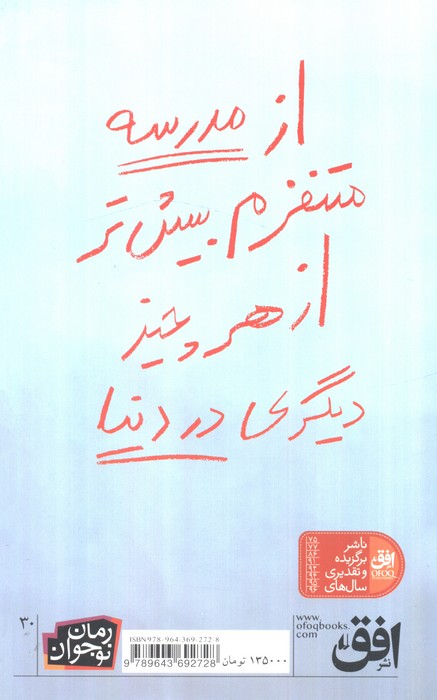 از مدرسه
متنفرم بیش‌تر
از هر چیز
دیگری در دنیا
ناشر
برگزیده
و تقدیری
سال‌های
افق
OFOQ
۳۰
رمان
نوجوان
ISBN 978-964-369-272-8
9 789643 692728
۱۳۵۰۰۰ تومان
www.
ofoqbooks.
com
نشر افق